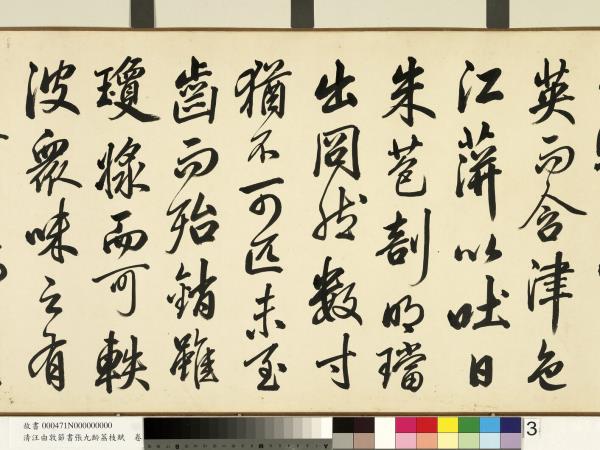 英而含津色
江蓱以吐日
朱苞剖明璫
出冏然數寸
猶不可匹未至
齒而殆銷雖
瓊漿而可軼
彼衆味之有
故書 000471N000000000
清汪由敦節書張九齡荔枝賦 卷
3